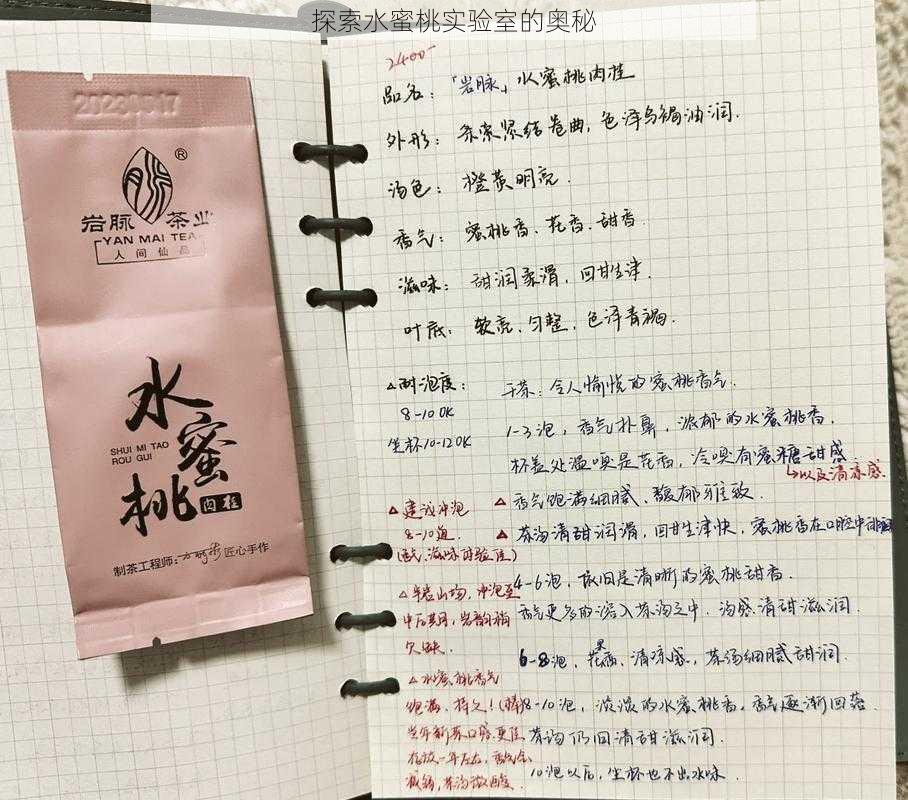 探索水蜜桃实验室的奥秘
岩脉®茶业
YAN MAI TEA
人间仙品
水蜜桃
SHUI MI TAO
ROU GUI
肉桂
制茶工程师：
匠心手作
2400
品名：「岩脉」水蜜桃肉桂
外形：条索紧结卷曲，色泽乌褐油润．
汤色：橙黄明亮．
香气：蜜桃香、花香、甜香．
滋味：甜润柔滑，回甘生津．
叶底：软亮，匀整，色泽青褐．
△耐泡度：
8-10 OK
坐杯10-12OK
△建议冲泡
8-10道．
△半岩山场，冲泡至
中后期，岩韵稍
欠缺．
△水蜜桃香气
饱满、持久！
当年新茶口感更佳
存放一年左右，香气会
减弱，茶汤微酸．
干茶：令人愉悦的蜜桃香气．
1-3泡，香气扑鼻，浓郁的水蜜桃香．
杯盖处温嗅是花香，冷嗅有蜜糖甜感
↳以及清凉感．
△香气饱满细腻、馥郁雅致．
△茶汤清甜润滑，回甘生津快，蜜桃香在口腔中
4-6泡，依旧是清晰的蜜桃甜香．
香气更多的溶入茶汤之中．汤感清甜滋润．
6-8泡，花香、清凉感，茶汤细腻甜润．
8-10泡，淡淡的水蜜桃香，香气逐渐回落．
茶汤仍旧清甜滋润．
10泡以后，坐杯也不出水味．